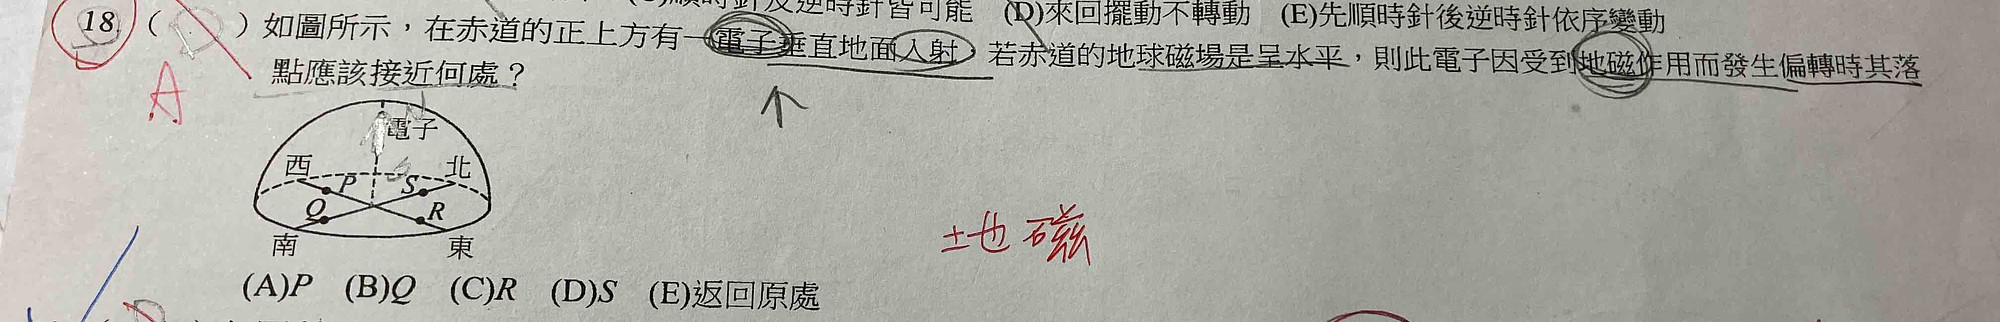 時針及逆時針皆可能 (D)來回擺動不轉動 (E)先順時針後逆時針依序變動
18 ( D ) 如圖所示，在赤道的正上方有一電子垂直地面入射，若赤道的地球磁場是呈水平，則此電子因受到地磁作用而發生偏轉時其落
點應該接近何處？
A
電子
西 北
P S
Q R
南 東
地磁
(A)P (B)Q (C)R (D)S (E)返回原處